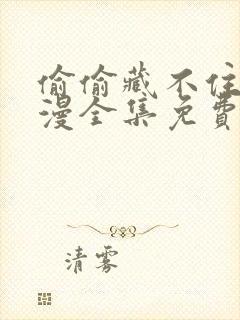 偷偷藏不住
漫全集免費
清雾